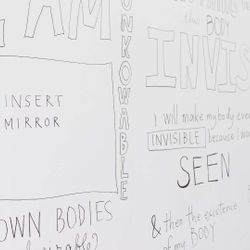 I AM
INSERT
MIRROR
UNKOWABLE
OWN BODIES
the
BODY
INVIS
I will make my body eve
INVISIBLE because I wa
SEEN
& then the existence
of my BODY